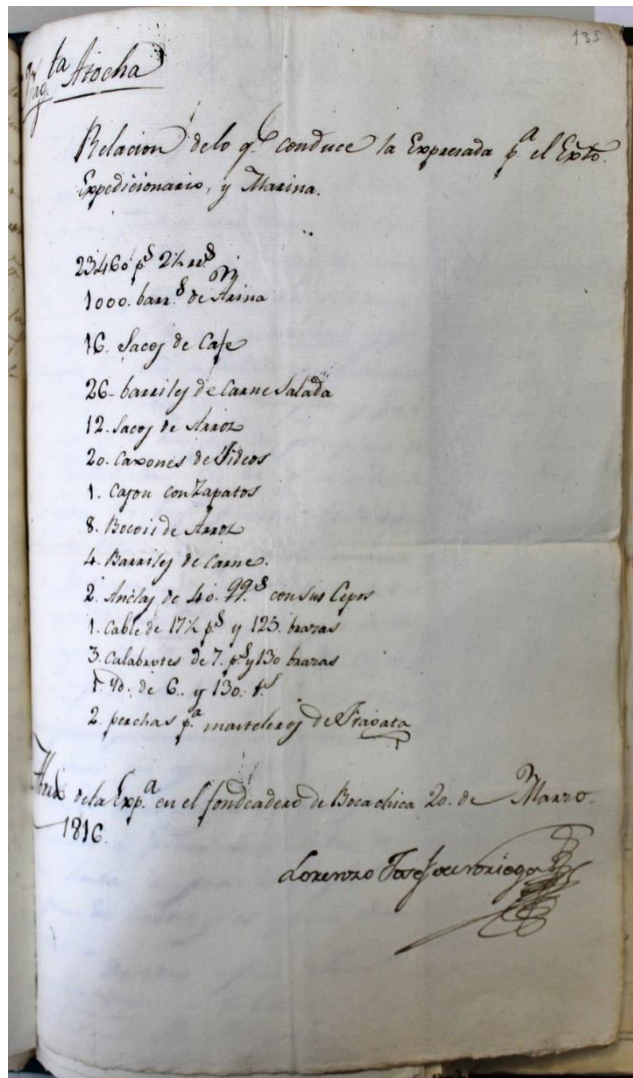 135
Frag.ta Atocha
Relacion delo q.e conduce la Expresada p.a el Exto.
Expedicionario, y Marina.
23460 p.s 2½ rr.s
1000. barr.s de Arina
16. Sacos de Cafe
26- barriles de Carne Salada
12. Sacos de Arroz
20. Caxones de Fideos
1. Cajon con Zapatos
8. Bocois de Arroz
4. Barriles de Carne.
2. Anclas de 40. qq.s con sus Cepos
1. Cable de 17½ p.s y 125. brazas
3. Calabrotes de 7. p.s y 130 brazas
1. Yd. de 6.. y 130. b.s
2. perchas p.a masteleros de Fragata
Abordo dela Exp.a en el fondeadero de Bocachica 20. de Marzo.
1816.
Lorenzo Josef de Noriega